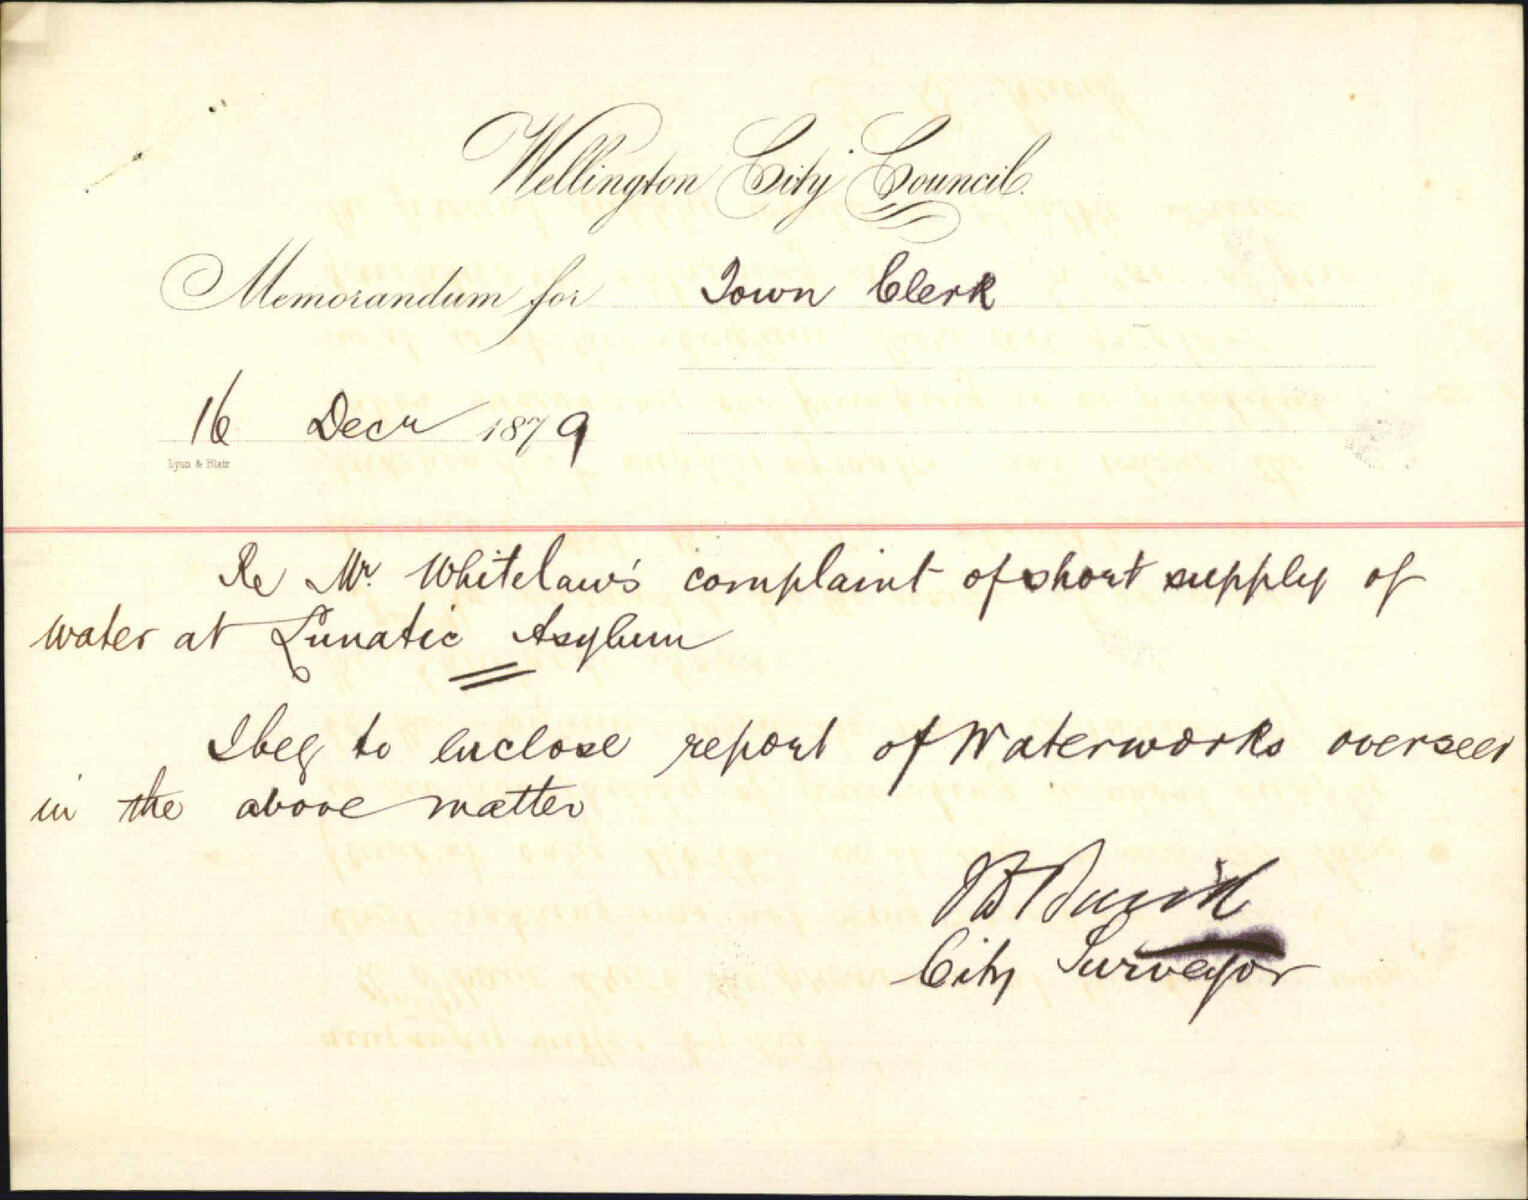 Wellington City Council.
Memorandum for Town Clerk
16 Decr 1879
Lyon & Blair
Re Mr. Whitelaw's complaint of short supply of
water at Lunatic Asylum
I beg to enclose report of Waterworks overseer
in the above matter
City Surveyor